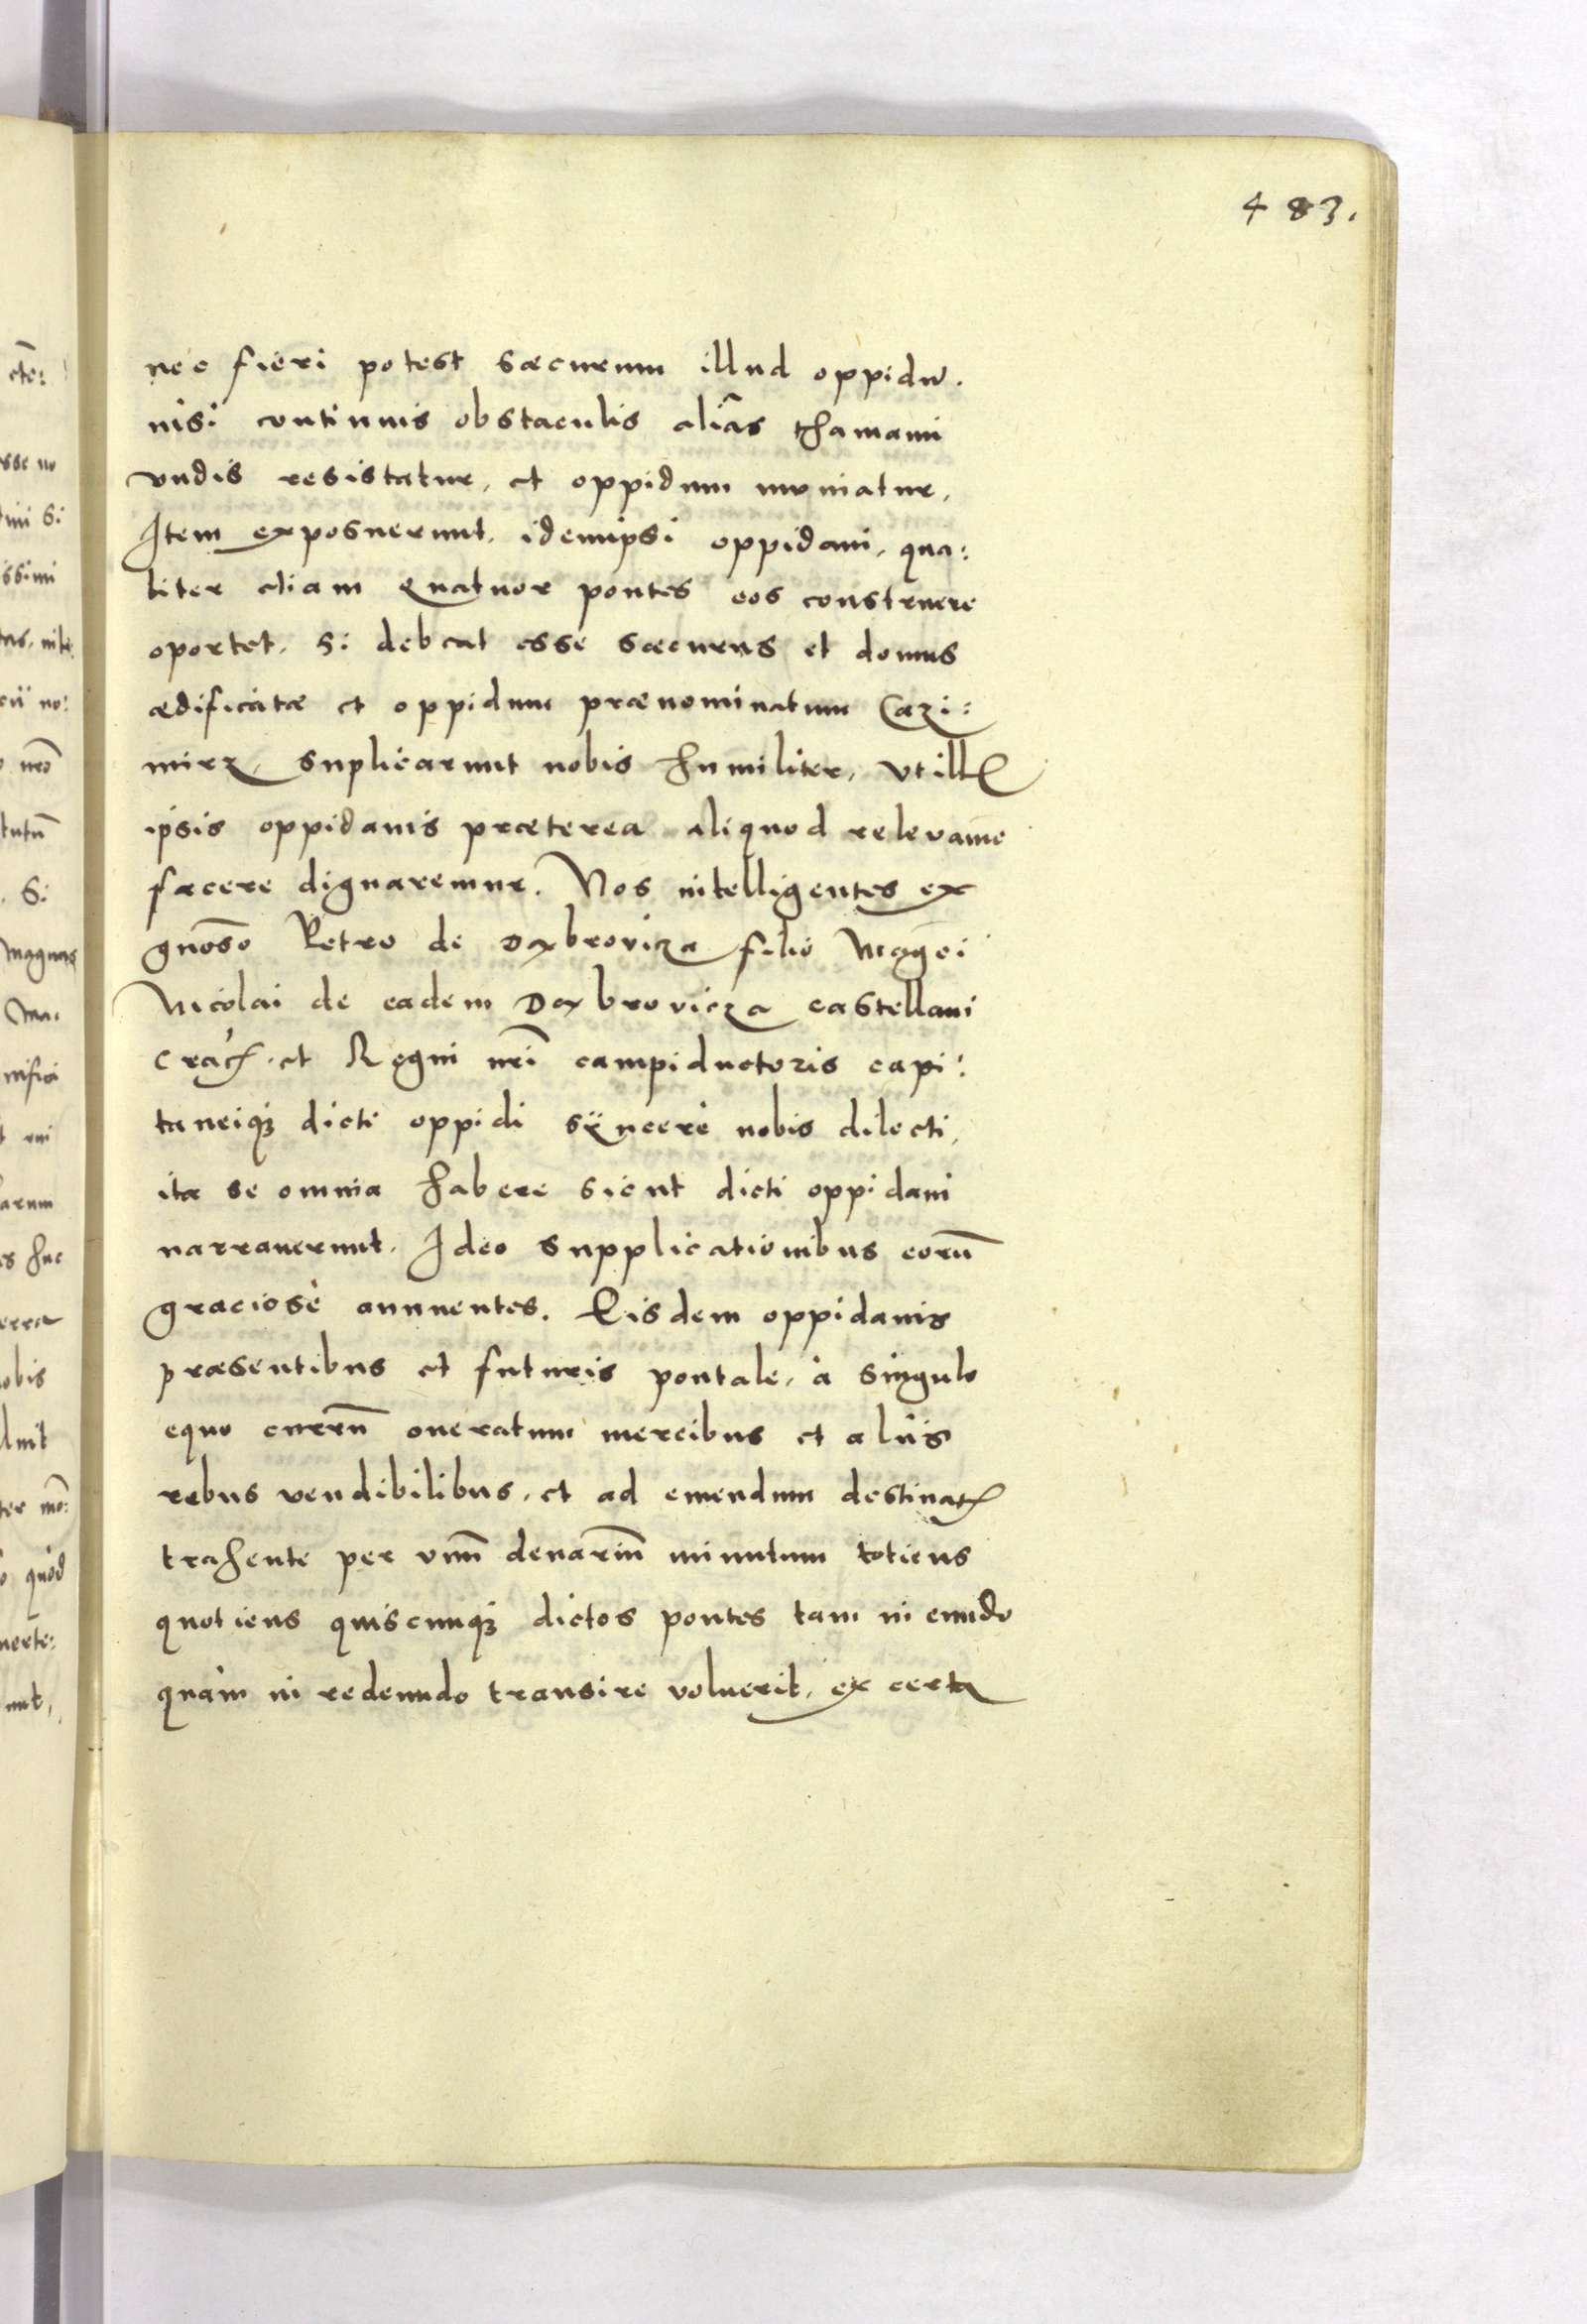 483.
nec fieri potest sæcurum illud oppidū.
nisi continuis obstaculis aliâs thamami
vndis resistatur, et oppidum muniatur,
Item exposuerunt, idemipsi oppidani, qua:
liter etiam quatuor pontes eos construere
oportet, si debeat esse sæcurus et domus
ædificatæ et oppidum prænominatum Cazi:
mirz, suplicarunt nobis humiliter, vt ill
ipsis oppidanis præterea aliquod relevamē
facere dignaremur. Nos intelligentes ex
gnōso Petro de Daxbrovicza filio Magci
Nicolai de eadem Daxbrovicza castellani
Crac et Regni nr̄i campiductoris capi:
taneiq₃ dicti oppidi sÿncerè nobis dilecti,
ita se omnia habere sicut dicti oppidani
narraverunt. Ideo supplicationibus eorū
graciosè annuentes. Eisdem oppidanis
præsentibus et futuris pontale, à singulo
equo currū oneratum mercibus et alijs
rebus vendibilibus, et ad emendum destinat
trahente per vnū denariū minutum totiens
quotiens quiscunq₃ dictos pontes tam in eundo
quàm in redeundo transire voluerit, ex certa